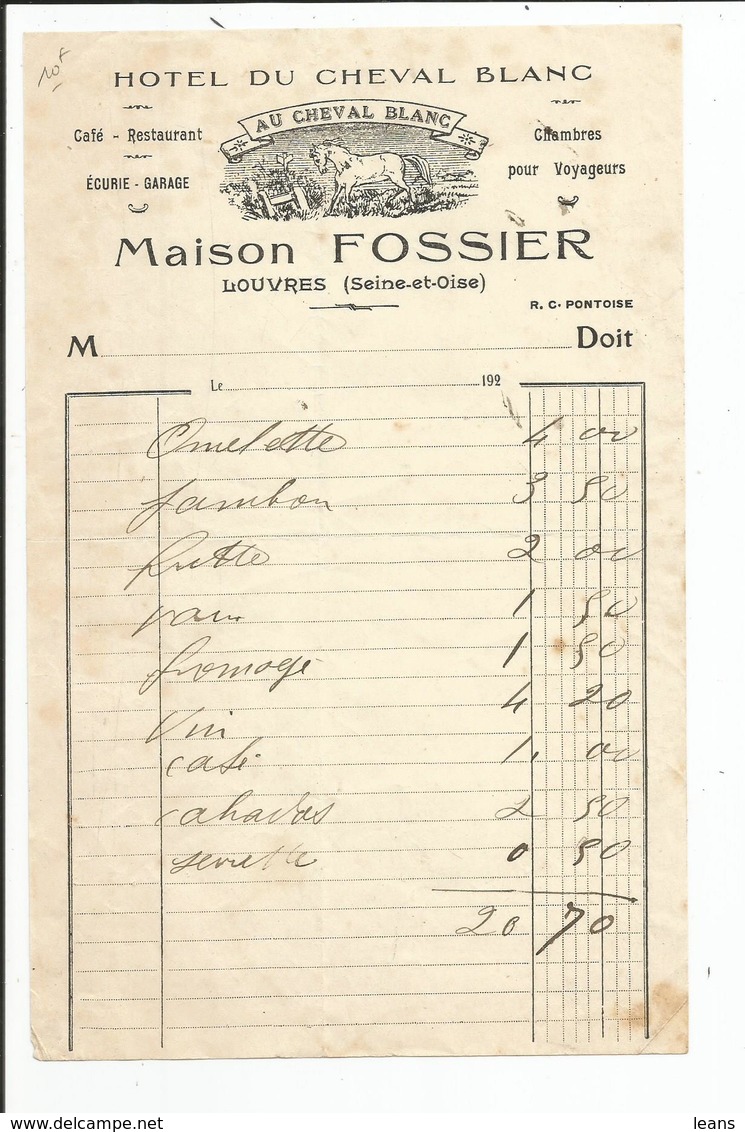 10f
HOTEL DU CHEVAL BLANC
AU CHEVAL BLANC
Café - Restaurant
ÉCURIE - GARAGE
Chambres
pour Voyageurs
Maison FOSSIER
LOUVRES (Seine-et-Oise)
R. C. PONTOISE
M Doit
Le 192
Omelette 4 00
Jambon 3 50
2 00
pain 1 50
fromage 1 50
Vin 4 20
café 1. 00
calvados 2 50
serviette 0 50
20 70
www.delcampe.net
leans